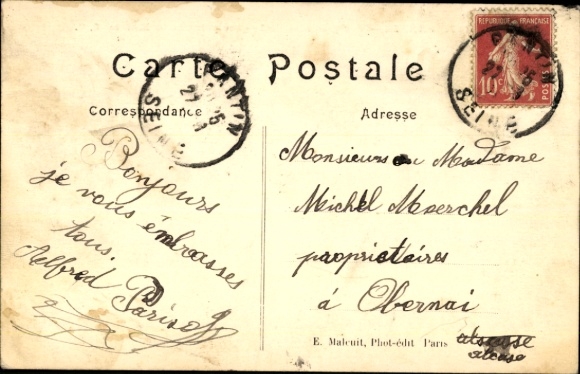 Carte Postale
Correspondance
Adresse
REPUBLIQUE FRANÇAISE
10c
POSTES
PANTIN
SEINE
PANTIN
SEINE
Bonjours
je vous embrasses
tous.
Alfred
Monsieurs ou Madame
Michel Moerchel
propriétaires
à Obernai
alsasse
alsase
E. Malcuit, Phot-édit Paris